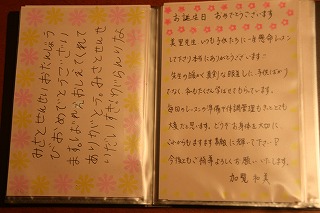 みさとせんせいおたんじょう
びおめでとうございい
ます。ばれえおしえてくれて
ありがとう。みさとせんせ
いだいすき
お誕生日 おめでとうございます
美里先生 いつも子供たちに一生懸命レッスン
して下さり本当にありがとうございます。
先生の温かく真剣な眼差しに、子供ばかり
でなく、母もたくさん学ばせてもらっています。
毎回のレッスンの準備や体調管理もきっととても
大変だと思います。どうぞ お身体を大切に
これからもますます素敵に輝いて下さい
今後ともご指導よろしくお願いいたします。